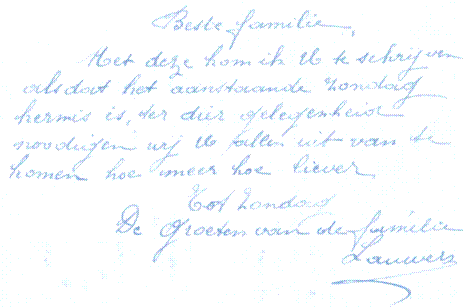 Beste familie,
Met deze kom ik U te schrijven
als dat het aanstaande zondag
kermis is, ter dier gelegenheid
noodigen wij U allen uit van te
komen hoe meer hoe liever
Tot zondag
De Groeten van de familie
Lauwers